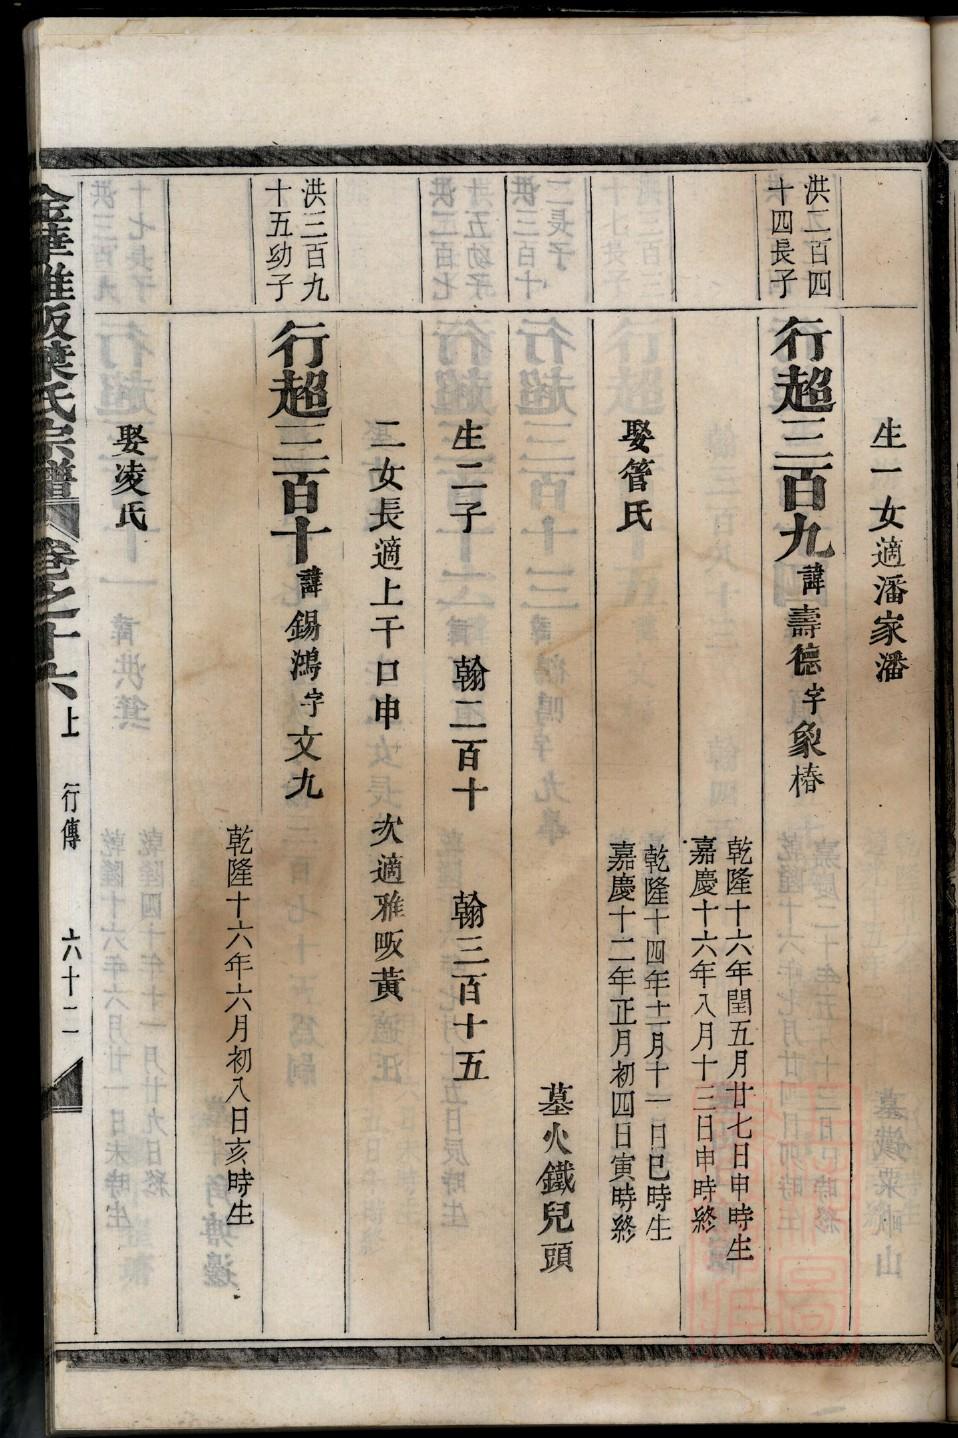 生一女適潘家潘
洪二百四
十四長子
行超三百九諱壽德字象椿
乾隆十六年閏五月廿七日申時生
嘉慶十六年八月十三日申時終
娶管氏
乾隆十四年十二月十一日巳時生
嘉慶十二年正月初四日寅時終
墓火鐵兒頭
生二子 翰二百十 翰三百十五
二女長適上干口申 次適雅畈黃
洪三百九
十五幼子
行超三百十諱錫鴻字文九
乾隆十六年六月初八日亥時生
娶凌氏
金華雅畈葉氏宗譜 卷之十六上 行傳 六十二